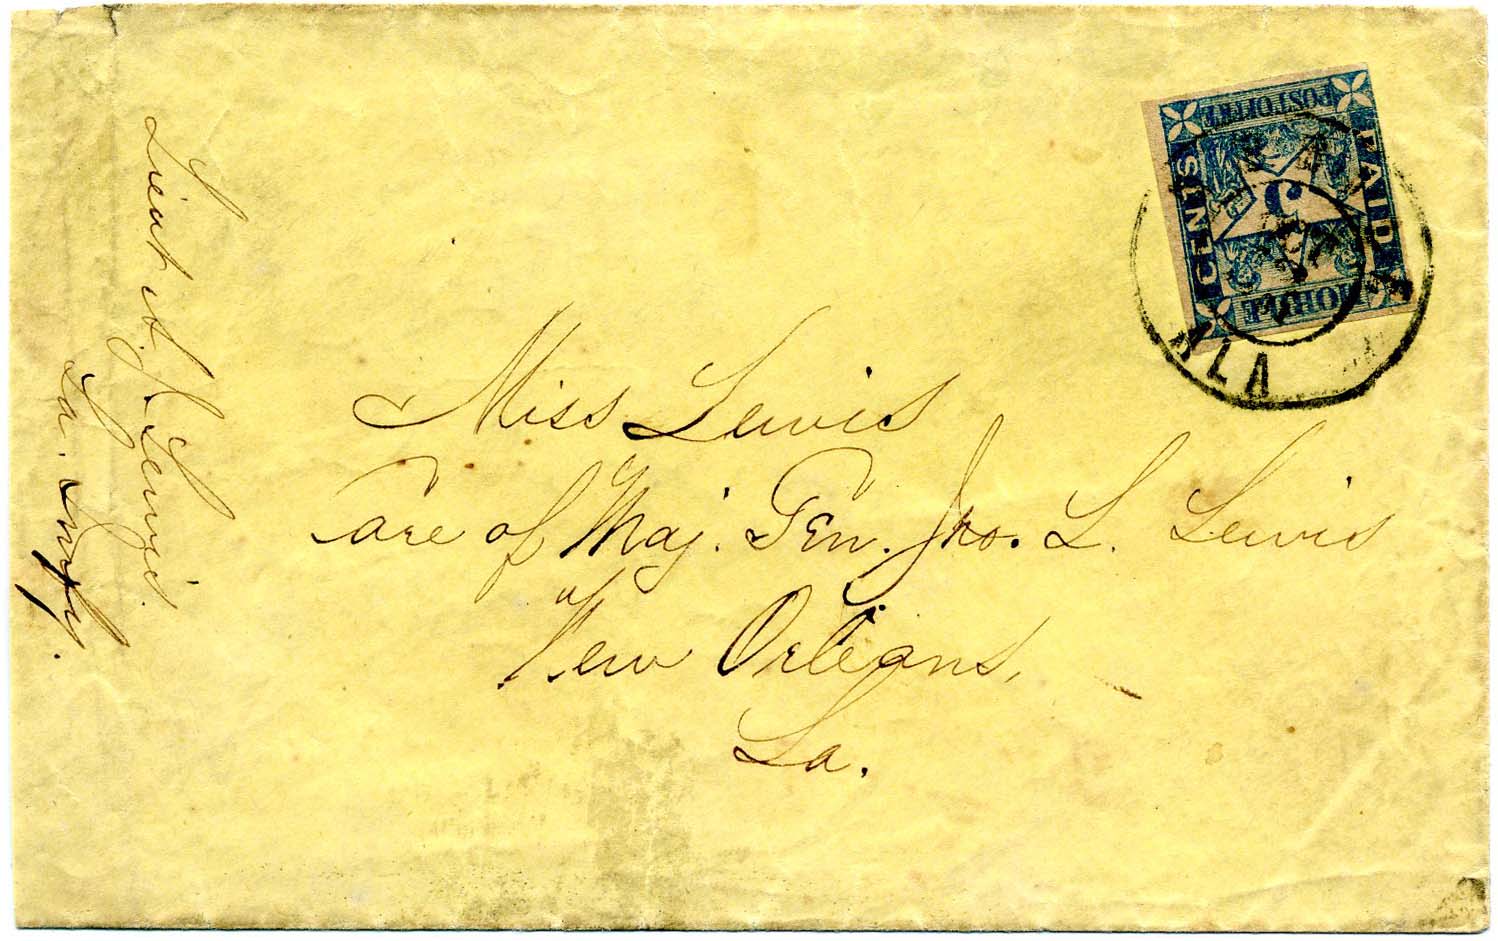 Lieut A. J. Lewis
La. Infty.
POST OFFICE
PAID
5
CENTS
MOBILE
ALA
Miss Lewis
Care of Maj. Gen. Jno. L. Lewis
New Orleans,
La.